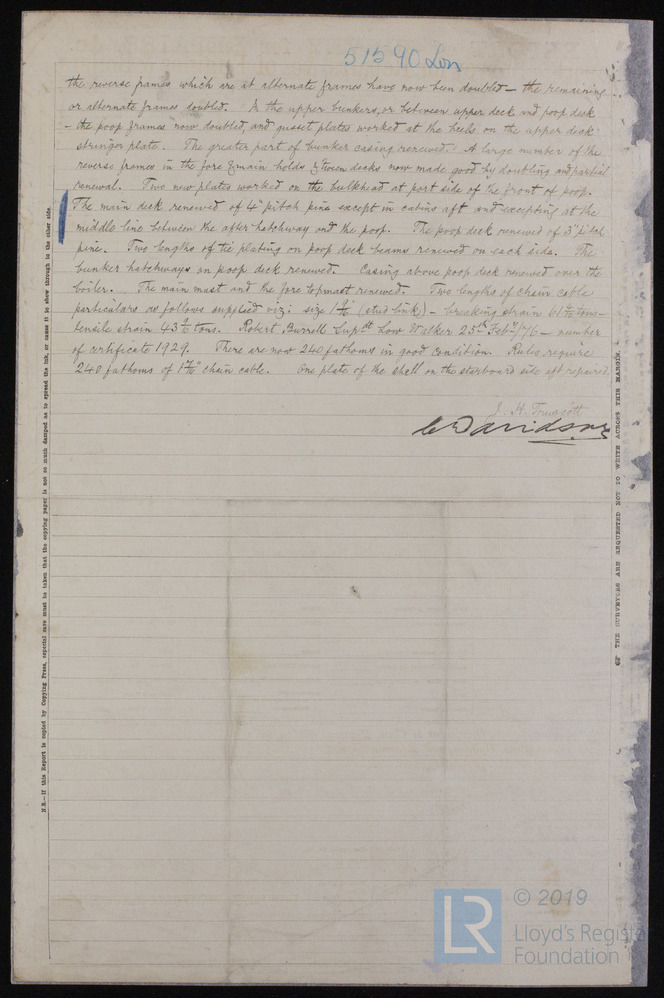 51590 Lon
the reverse frames which are at alternate frames have now been doubled – the remaining
or alternate frames doubled. In the upper bunkers, or between upper deck and poop deck
– the poop frames now doubled, and gusset plates worked at the heels, on the upper deck
stringer plate. The greater part of bunker casing renewed. A large number of the
reverse frames in the fore & main holds & tween decks now made good by doubling and partial
renewal. Two new plates worked on the bulkhead at port side of the front of poop.
The main deck renewed of 4" pitch pine except in cabins aft and excepting at the
middle line between the after hatchway and the poop. The poop deck renewed of 3" pitch
pine. Two lengths of tie plating on poop deck beams renewed on each side. The
bunker hatchways on poop deck renewed. Casing above poop deck renewed over the
boiler. The main mast and the fore topmast renewed. Two lengths of chain cable
particulars as follows supplied viz: size (stud link) – breaking strain 61 tons –
tensile strain 43 1/2 tons. Robert Burrell Supdt Low Walker 25th Feby/76 – number
of certificate 1929. There are now 240 fathoms in good condition. Rules require
240 fathoms of chain cable. One plate of the shell on the starboard side aft repaired.
J. H. Truscott
C Davidson
N.B.—If this Report is copied by Copying Press, especial care must be taken that the copying paper is not so much damped as to spread the ink, or cause it to show through to the other side.
THE SURVEYORS ARE REQUESTED NOT TO WRITE ACROSS THIS MARGIN.
LR
© 2019
Lloyd's Register
Foundation